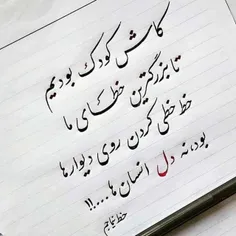 کاش کودک بودیم
تا بزرگترین خطای ما
خط خطی کردن روی دیوارها
بود، نه دل انسان ها.....!!